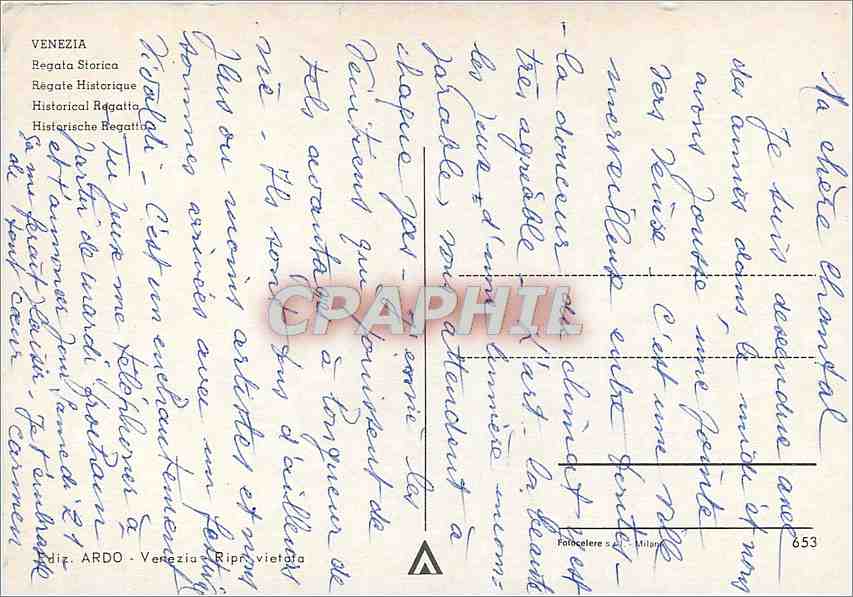 VENEZIA
Regata Storica
Régate Historique
Historical Regatta
Historische Regatta
Ma chère Chantal
Je suis descendue avec
des amies dans le midi et nous
avons poussé une pointe
vers Venise - C'est une ville
merveilleuse entre toutes -
- la douceur du climat y est
très agréable - L'art - la beauté
les jeux d'une lumière incom=
parable, vous attendent à
chaque pas - les
Vénitiens qui jouissent de
tels avantages à longueur de
Ils sont tous d'ailleurs
plus ou moins artistes et nous
sommes arrivées avec un festival
Vivaldi - C'est un enchantement
Tu peux me téléphoner à
partir de mardi prochain
et t'amener samedi 21 -
ça me ferait plaisir - Je t'embrasse
de tout cœur Carmen
CPAPHIL
Ediz. ARDO - Venezia - Ripr. vietata
Fotocelere - Milano
653